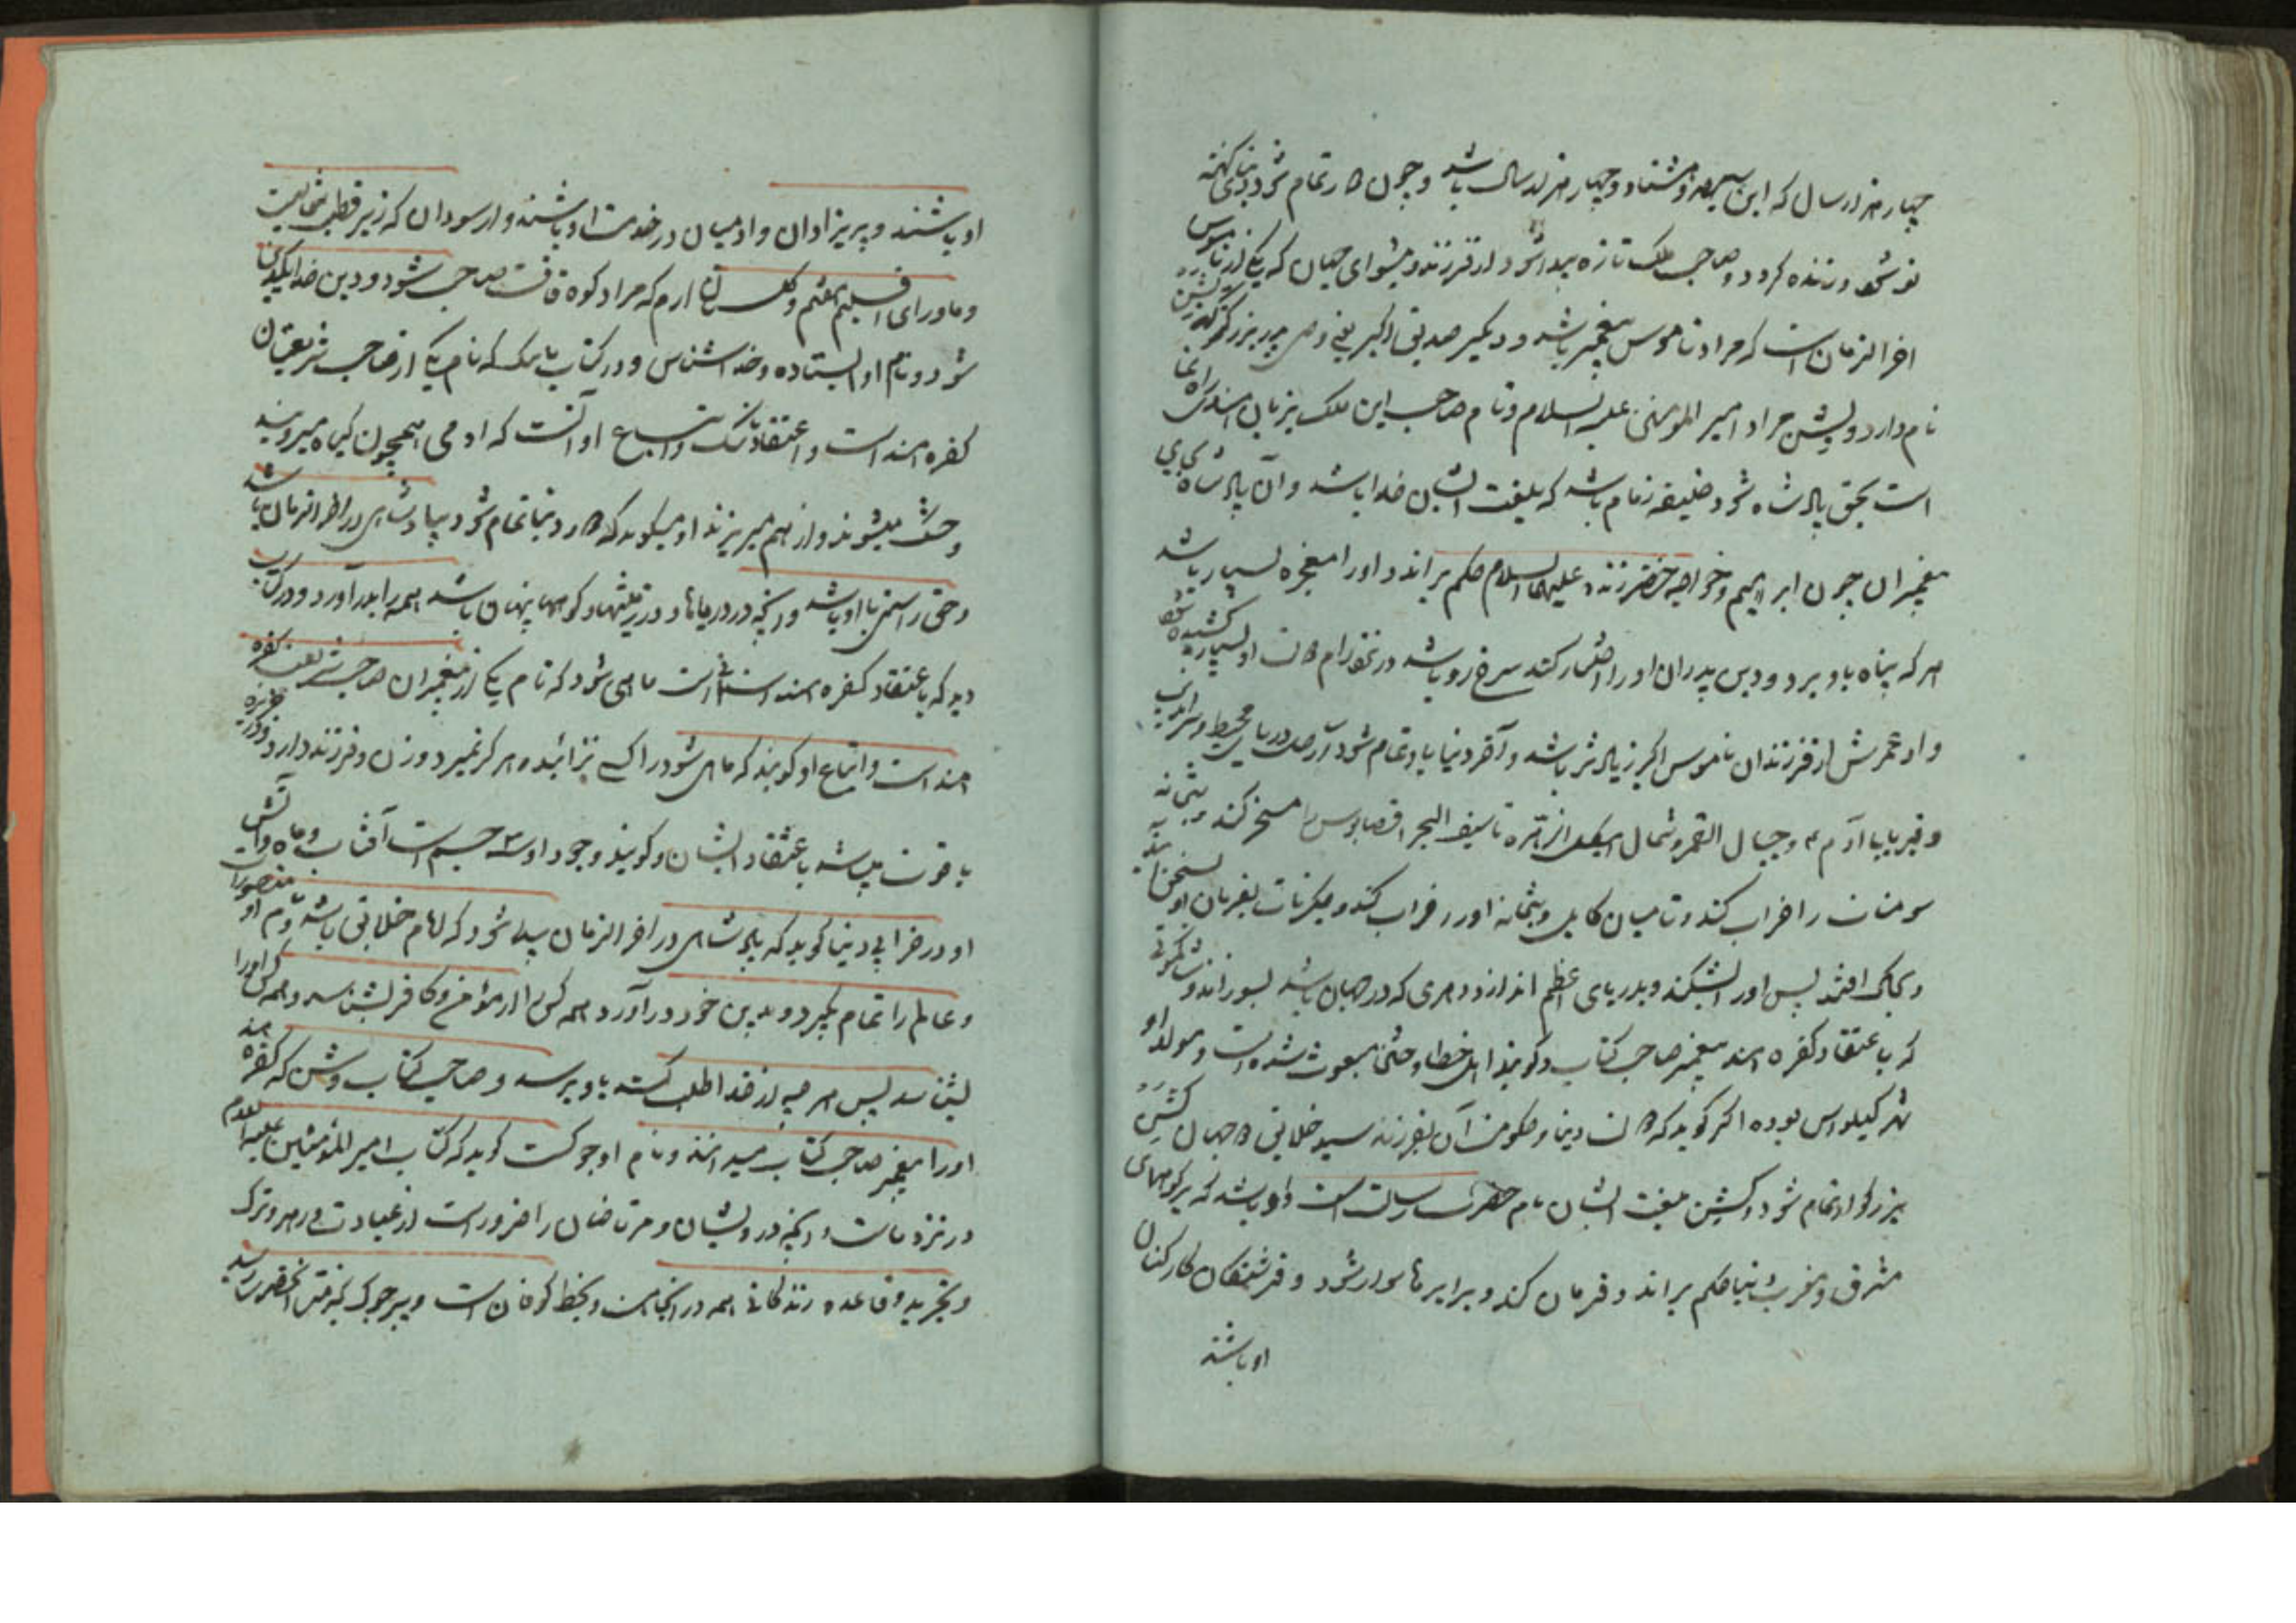 چهار هزار سال که این سیصد و هشتاد و چهار هزار سال باشد و چون کار تمام شود دنیای کهنه
نو شود و زنده گردد و صاحب ملک تازه پیدا شود از فرزند دو پیشوای جهان که یکی از ناموس
اخر الزمان است که مراد ناموس پیغمبر باشد و دیگر صدیق اکبر یعنی وصی پدر بزرگوار کوچک بشن
نام دارد و بشن مراد امیر المومنین علیه السلام و نام صاحب این ملک بزبان هند راه نما
است بحق پادشاه شود و خلیفه زمام باشد که بلغت ایشان خدا باشد و آن پادشاه بجای
پیغمبران چون ابراهیم و خواجه خضر زنده علیهما السلام حکم براند و او را معجزه بسیار باشد
هر که پناه باو برد و دین پدران او را اختیار کند سرخ رو باشد در نزد رام
و او عمرش از فرزندان ناموس اکبر زیاده تر باشد و آخر دنیا باو تمام شود از ساحل دریای محیط و سراندیب
و قبر بابا آدم و جبال القمر و شمال هیکل زهره تا سیف البحر اقصا مسخر کند و بتخانه
سومنات را خراب کند و تا میان کابل و بتخانه او را خراب کند و جگرنات بفرمان او بسخن آید
و بخاک افتد پس او را بشکند و بدریای اعظم اندازد و هری که در جهان باشد بسوزاند و شاکمونی
که باعتقاد کفره هند پیغمبر صاحب کتاب و گویند اهل خطا و ختن مبعوث شده است و مولد او
شهر کیلواس بوده اکر گوید که دنیا و حکومت آن بفرزند سید خلایق جهان کشن
بزرگوار تمام شود و کشن بلغت ایشان نام حضرت رسالت است و او باشد که بر کوههای
مشرق و مغرب دنیا حکم براند و فرمان کند و بر ابرها سوار شود و فرشتگان کارکنان
او باشند
او باشند و پریزادان و ادمیان در خدمت او باشند و از سودان که زیر قطب شمالیست
و ماورای اقلیم هفتم و گلستان ارم که مراد کوه قافست صاحب شود و دین خدا یک دین
شود و نام او ایستاده و خداشناس و در کتاب باسک که نام یکی از صاحب شریعتان
کفره هند است و اعتقاد باسک و اتباع او آنست که ادمی همچون گیاه میرویند
و خشک میشوند و از هم میریزند او میگوید که کار دنیا تمام شود بپادشاهی در اخر الزمان باشد
و حق راستی با او باشد و آنچه در دریاها و در زمینها و کوهها پنهان باشد همه را بدر آورد و در کتاب
دید که باعتقاد کفره هند آسمانی است ماهی شود که نام یکی از پیغمبران صاحب شریعت کفره
هند است و اتباع او گویند که ماهی شود را کسی نزائیده و هرگز نمیرد و زن و فرزند دارد
با قوت باشد باعتقاد ایشان و گویند وجود او سه جسم است آفتاب و ماه و آتش
او در خرابی دنیا گوید که پادشاهی در اخر الزمان پیدا شود که امام خلایق باشد و نام او منصور
و عالم را تمام بگیرد و بدین خود در آورد همه کس را از مومن و کافر بشناسد و همه کس او را
بشناسد پس هر چه از خدا طلب کند باو برسد و صاحب کتاب وشن که کفره هند
او را پیغمبر صاحب کتاب میدانند و نام او جوکست گوید که کتاب امیر المومنین علیه السلام
در نزد ماست و آنچه درویشان و مرتاضان را ضرور است از عبادت و زهد و ترک
و تجرید و قاعده زندگانی همه در آنجاست و بخط کوفان است و پیر جوک بخدمت آنحضرت رسید